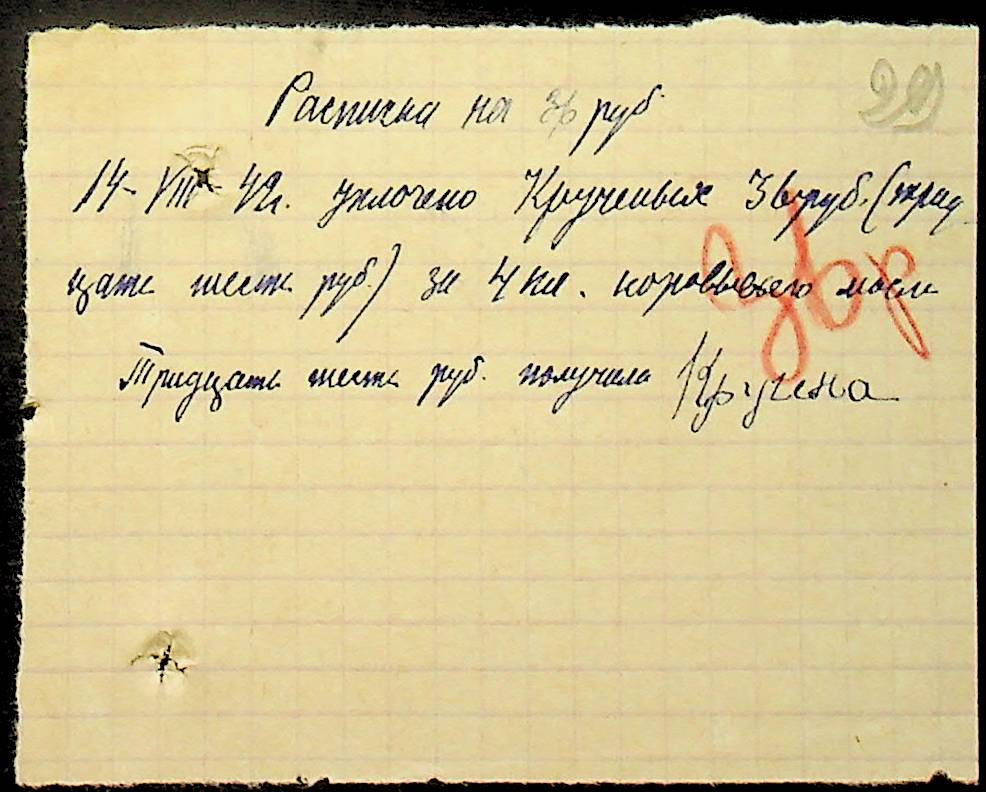 29
Расписка на 36 руб.
14-VIII-42г. уплочено Крученых 36 руб. (трид
цать шесть руб.) за 4 кл. коровьего масла
36 р
Тридцать шесть руб. получила Кручена